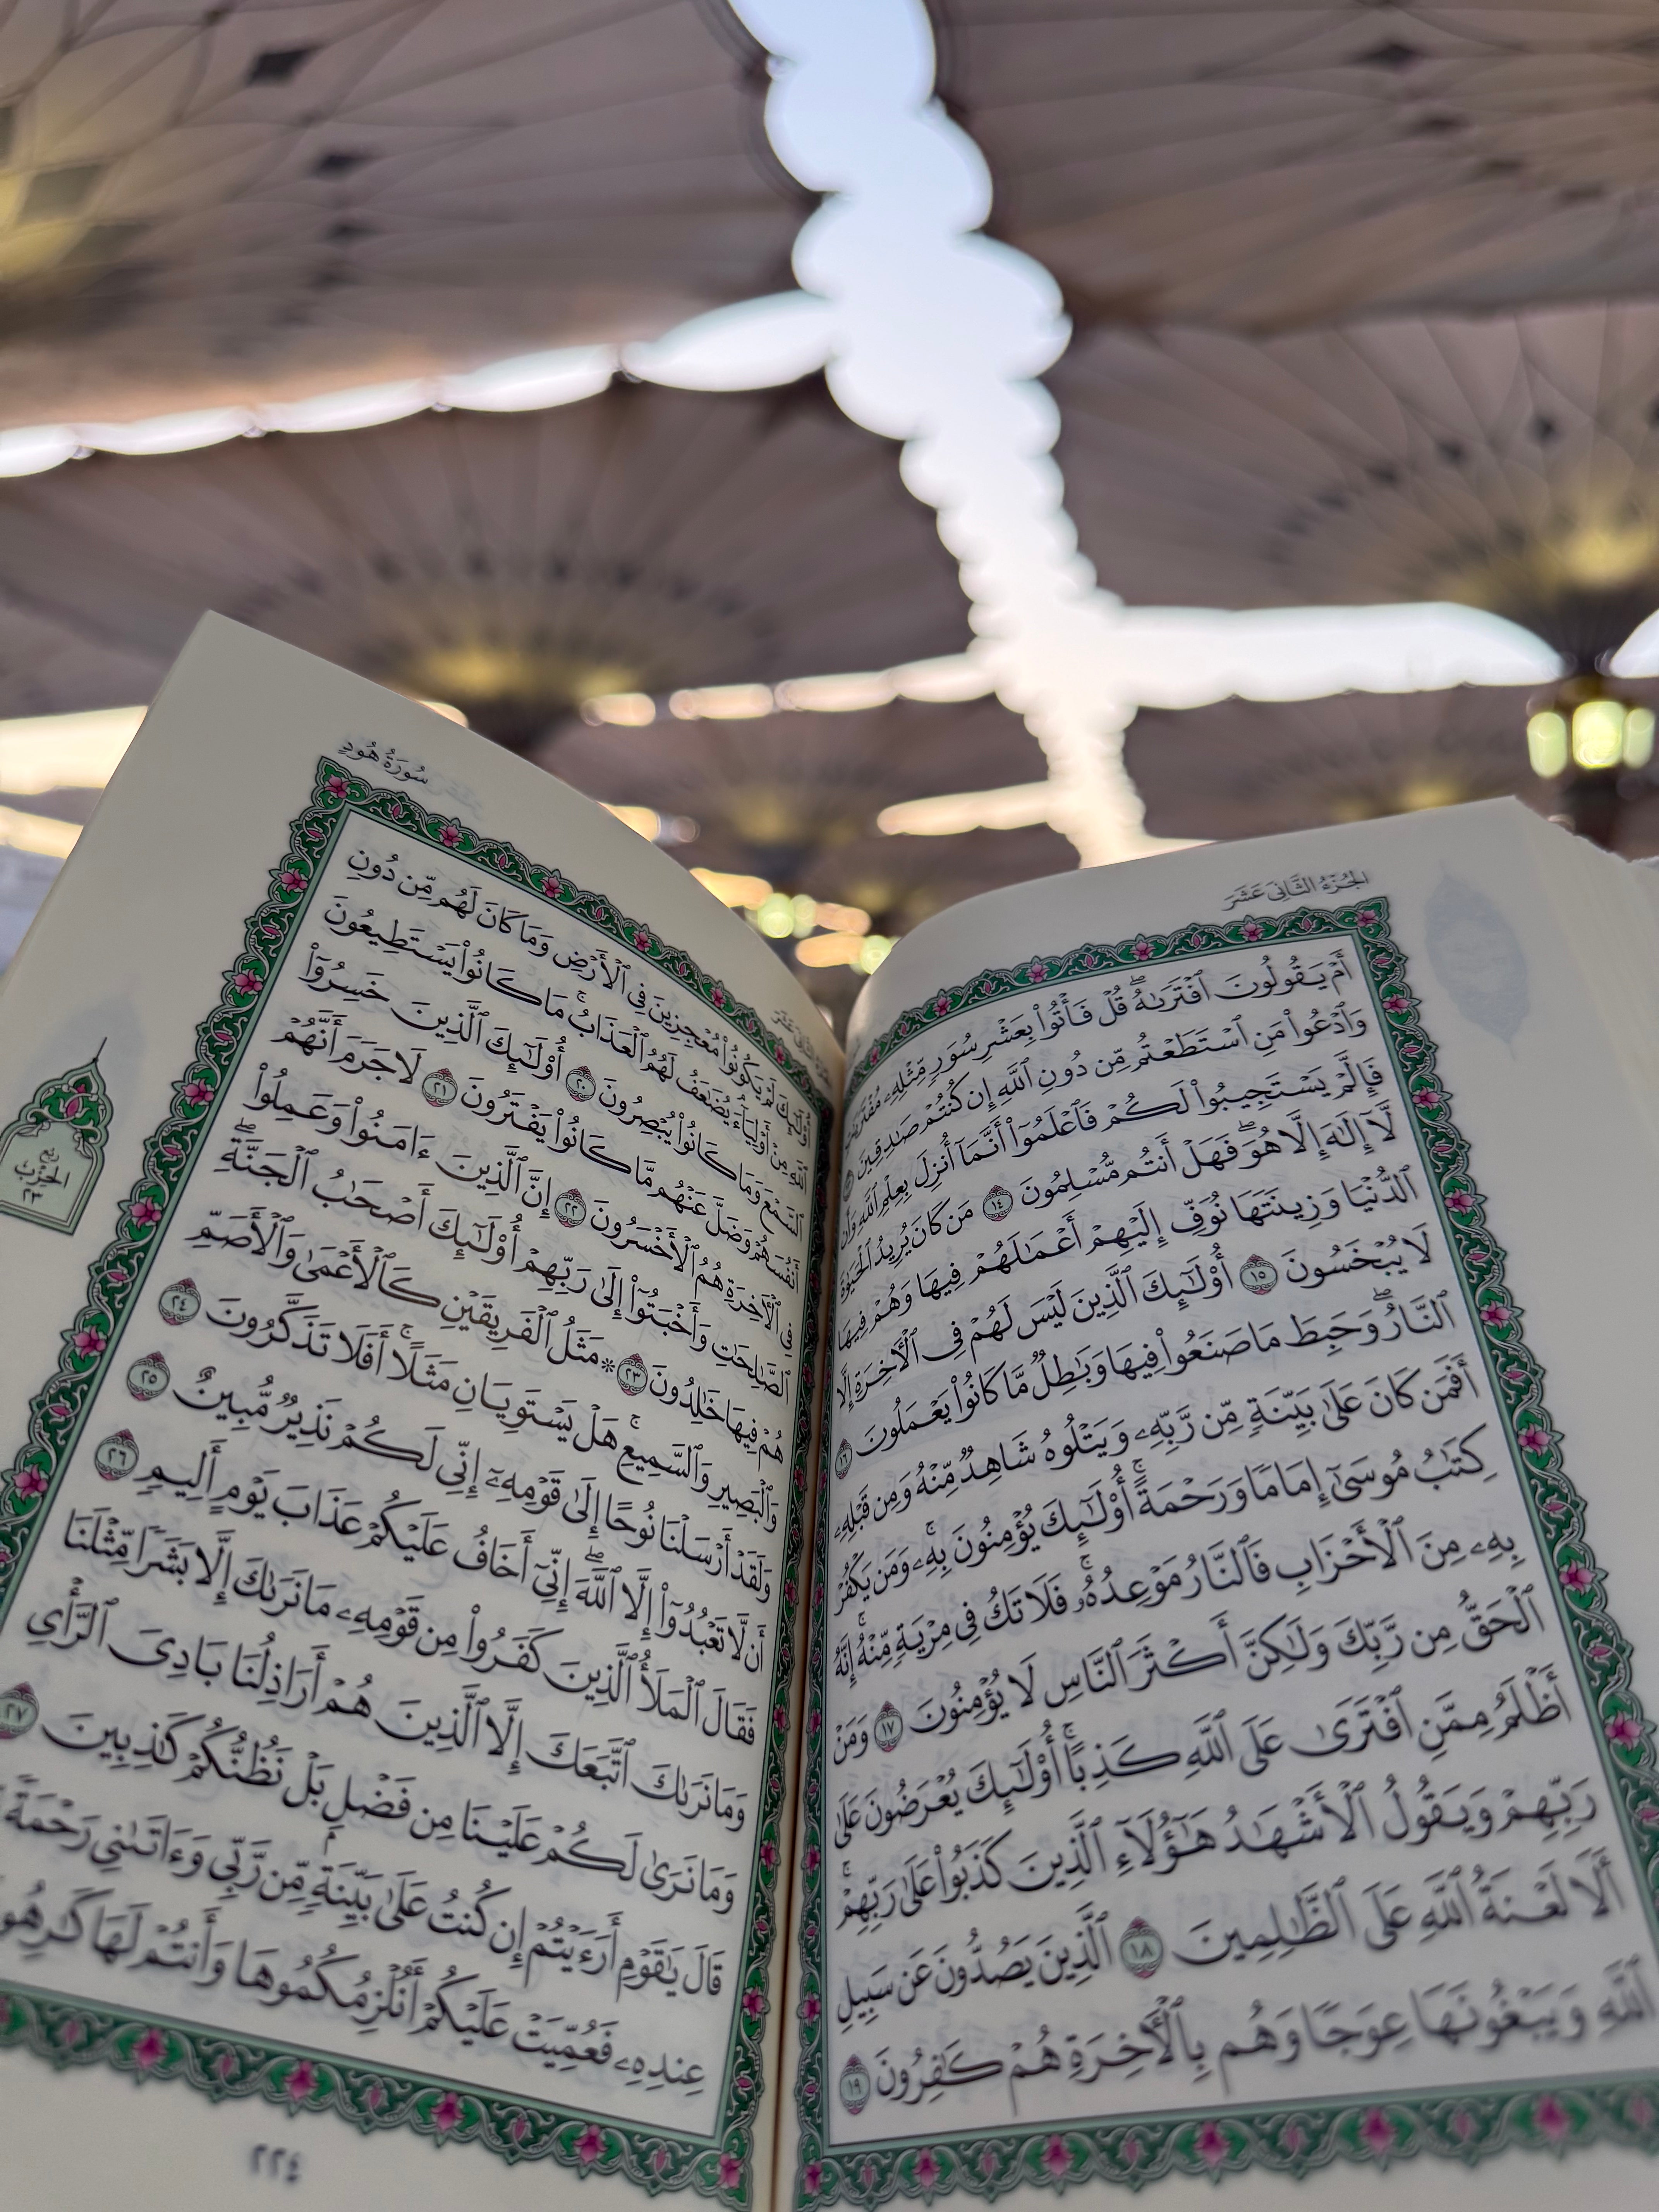 الجُزْءُ الثَّانِي عَشَرَ
أَمْ يَقُولُونَ ٱفْتَرَىٰهُۖ قُلْ فَأْتُوا۟ بِعَشْرِ سُوَرٍ مِّثْلِهِۦ
وَٱدْعُوا۟ مَنِ ٱسْتَطَعْتُم مِّن دُونِ ٱللَّهِ إِن كُنتُمْ صَٰدِقِينَ
فَإِلَّمْ يَسْتَجِيبُوا۟ لَكُمْ فَٱعْلَمُوٓا۟ أَنَّمَآ أُنزِلَ بِعِلْمِ ٱللَّهِ وَأَن
لَّآ إِلَٰهَ إِلَّا هُوَۖ فَهَلْ أَنتُم مُّسْلِمُونَ ١٤ مَن كَانَ يُرِيدُ ٱلْحَيَوٰةَ
ٱلدُّنْيَا وَزِينَتَهَا نُوَفِّ إِلَيْهِمْ أَعْمَٰلَهُمْ فِيهَا وَهُمْ فِيهَا
لَا يُبْخَسُونَ ١٥ أُو۟لَٰٓئِكَ ٱلَّذِينَ لَيْسَ لَهُمْ فِى ٱلْأَخِرَةِ إِلَّا
ٱلنَّارُۖ وَحَبِطَ مَا صَنَعُوا۟ فِيهَا وَبَٰطِلٌ مَّا كَانُوا۟ يَعْمَلُونَ ١٦
أَفَمَن كَانَ عَلَىٰ بَيِّنَةٍ مِّن رَّبِّهِۦ وَيَتْلُوهُ شَاهِدٌ مِّنْهُ وَمِن قَبْلِهِۦ
كِتَٰبُ مُوسَىٰٓ إِمَامًا وَرَحْمَةًۚ أُو۟لَٰٓئِكَ يُؤْمِنُونَ بِهِۦۚ وَمَن يَكْفُرْ
بِهِۦ مِنَ ٱلْأَحْزَابِ فَٱلنَّارُ مَوْعِدُهُۥۚ فَلَا تَكُ فِى مِرْيَةٍ مِّنْهُۚ إِنَّهُ
ٱلْحَقُّ مِن رَّبِّكَ وَلَٰكِنَّ أَكْثَرَ ٱلنَّاسِ لَا يُؤْمِنُونَ ١٧ وَمَنْ
أَظْلَمُ مِمَّنِ ٱفْتَرَىٰ عَلَى ٱللَّهِ كَذِبًاۚ أُو۟لَٰٓئِكَ يُعْرَضُونَ عَلَىٰ
رَبِّهِمْ وَيَقُولُ ٱلْأَشْهَٰدُ هَٰٓؤُلَآءِ ٱلَّذِينَ كَذَبُوا۟ عَلَىٰ رَبِّهِمْۚ
أَلَا لَعْنَةُ ٱللَّهِ عَلَى ٱلظَّٰلِمِينَ ١٨ ٱلَّذِينَ يَصُدُّونَ عَن سَبِيلِ
ٱللَّهِ وَيَبْغُونَهَا عِوَجًا وَهُم بِٱلْأَخِرَةِ هُمْ كَٰفِرُونَ ١٩
سُورَةُ هُودٍ
لَمْ يَكُونُوا۟ مُعْجِزِينَ فِى ٱلْأَرْضِ وَمَا كَانَ لَهُم مِّن دُونِ
ٱللَّهِ مِنْ أَوْلِيَآءَۘ يُضَٰعَفُ لَهُمُ ٱلْعَذَابُۚ مَا كَانُوا۟ يَسْتَطِيعُونَ
ٱلسَّمْعَ وَمَا كَانُوا۟ يُبْصِرُونَ ٢٠ أُو۟لَٰٓئِكَ ٱلَّذِينَ خَسِرُوٓا۟
أَنفُسَهُمْ وَضَلَّ عَنْهُم مَّا كَانُوا۟ يَفْتَرُونَ ٢١ لَا جَرَمَ أَنَّهُمْ
فِى ٱلْأَخِرَةِ هُمُ ٱلْأَخْسَرُونَ ٢٢ إِنَّ ٱلَّذِينَ ءَامَنُوا۟ وَعَمِلُوا۟
ٱلصَّٰلِحَٰتِ وَأَخْبَتُوٓا۟ إِلَىٰ رَبِّهِمْ أُو۟لَٰٓئِكَ أَصْحَٰبُ ٱلْجَنَّةِۖ
هُمْ فِيهَا خَٰلِدُونَ ٢٣ * مَثَلُ ٱلْفَرِيقَيْنِ كَٱلْأَعْمَىٰ وَٱلْأَصَمِّ
وَٱلْبَصِيرِ وَٱلسَّمِيعِۚ هَلْ يَسْتَوِيَانِ مَثَلًاۚ أَفَلَا تَذَكَّرُونَ ٢٤
وَلَقَدْ أَرْسَلْنَا نُوحًا إِلَىٰ قَوْمِهِۦٓ إِنِّى لَكُمْ نَذِيرٌ مُّبِينٌ ٢٥
أَن لَّا تَعْبُدُوٓا۟ إِلَّا ٱللَّهَۖ إِنِّىٓ أَخَافُ عَلَيْكُمْ عَذَابَ يَوْمٍ أَلِيمٍ ٢٦
فَقَالَ ٱلْمَلَأُ ٱلَّذِينَ كَفَرُوا۟ مِن قَوْمِهِۦ مَا نَرَىٰكَ إِلَّا بَشَرًا مِّثْلَنَا
وَمَا نَرَىٰكَ ٱتَّبَعَكَ إِلَّا ٱلَّذِينَ هُمْ أَرَاذِلُنَا بَادِىَ ٱلرَّأْىِ
وَمَا نَرَىٰ لَكُمْ عَلَيْنَا مِن فَضْلٍۭ بَلْ نَظُنُّكُمْ كَٰذِبِينَ ٢٧
قَالَ يَٰقَوْمِ أَرَءَيْتُمْ إِن كُنتُ عَلَىٰ بَيِّنَةٍ مِّن رَّبِّى وَءَاتَىٰنِى رَحْمَةً
عِندِهِۦ فَعُمِّيَتْ عَلَيْكُمْ أَنُلْزِمُكُمُوهَا وَأَنتُمْ لَهَا
ربع
الحِزْب
٢٣
٢٢٤